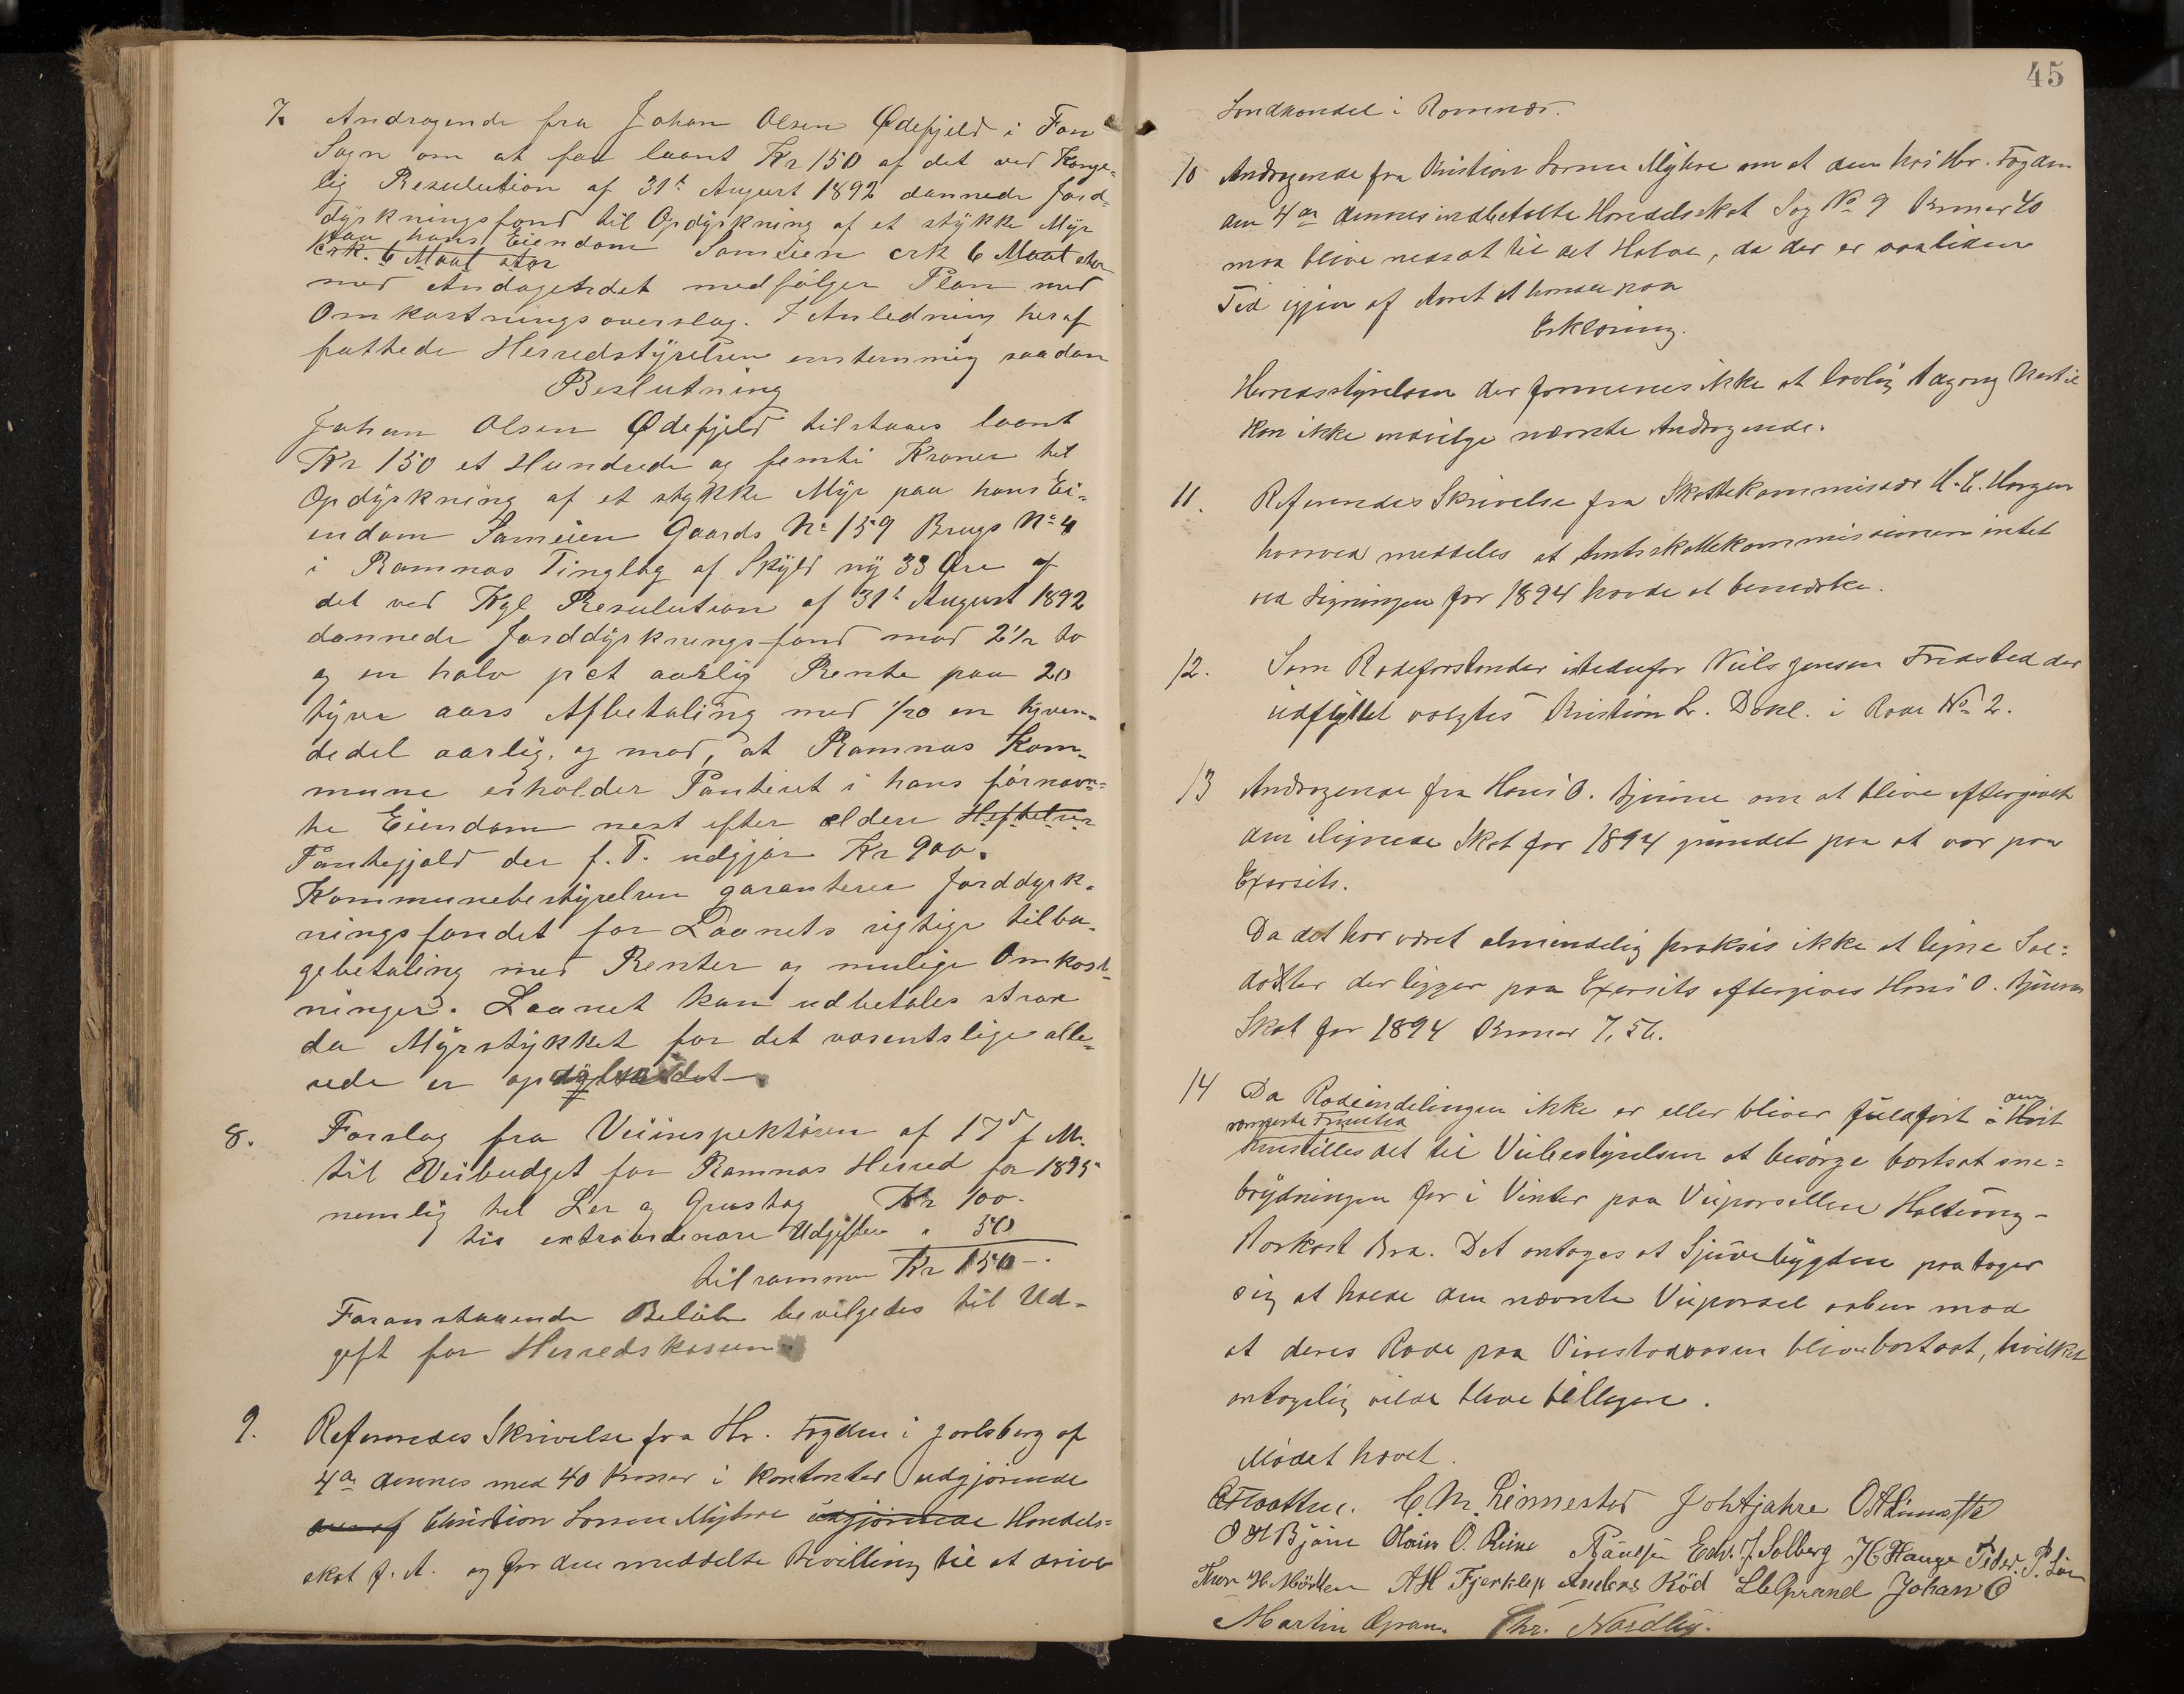 7. Andragende fra Johan Olsen Ødefjeld i Fon
Sogn om at faa laant Kr 150 af det ved Konge-
lig Resulution af 31te August 1892 dannede Jord-
dÿrkningsfond til Opdÿrkning af et stÿkke Mÿr
paa hans Eiendom Sameien crk 6 Maal stor
crk. 6 Maal stor
med Andagendet medfølger Plan med
Omkostningsoverslag. I Anledning heraf
fattede Herredstÿrelsen enstemmig saadan
Beslutning
Johan Olsen Ødefjeld tilstaaes laant
Kr 150 et Hundrede og femti Kroner til
Opdÿrkning af et stykke Mÿr paa hans Ei-
endom Sameien Gaards No 159 Brugs No 4
i Ramnas Tinglag af Skÿld nÿ 33 Øre af
det ved Kgl. Resulution af 31te August 1892
dannede Jorddÿrknings-fond mod 2½ to
og en halv pct aarlig Rente paa 20
tÿve aars Afbetaling med 1/20 en tÿven-
dedel aarlig, og mod, at Ramnas Kom-
mune erholder Panteret i hans førnævn-
te Eiendom nest efter eldere Heftelser
Pantegjæld der f. T. udgjør Kr 900.
Kommunebestÿrelsen garanterer Jorddyrk-
ningsfondet for Laanets rigtige tilba-
gebetaling med Renter og mulige Omkost-
ninger. Laanet kan udbetales strax
da Mÿrstÿkket for det væsentslige alle-
rede er op
8. Forslag fra Veiinspektøren af 17d f. M.
til Veibudget for Ramnas Herred for 1895
nemlig til Ler og Grustag Kr 100-
til extraordenære Udgifter " 50
tilsammen Kr 150-.
Foranstaaende Beløb bevilgedes til Ud-
gift for Herredskassen
9. Refereredes Skrivelse fra Hr. Fogden i Jarlsberg af
4de dennes med 40 Kroner i Kontanter udgjørende
Christian Larsen Mÿhre udgjørende Handels-
skat f. A. og for den meddelte Bevilling til at drive
45
Landhandel i Ramnæs.
10 Andragende fra Kristian Larsen Mÿhre om at den hos Hr. Fogden
den 4de dennes indbetalte Handelsskat Sag No 9 Kroner 40
maa blive nedsat til det Halve, da der er saa liden
Tid igjen af Aaret at handle paa
Erklæring.
Herredsstÿrelsen der formenes ikke at lovlig Adgang hertil
kan ikke indvilge nævnte Andragende.
11. Refereredes Skrivelse fra Skattekommisær H. E. Horgen
hvorved meddeles at Amtsskattekommissionen intet
ved Ligningen for 1894 havde at bemærke.
12. Som Rodeforstander istedenfor Niels Jensen Fredsted der
udflÿttet valgtes Kristian L. Døvl. i Rode No 2.
13 Andragende fra Hans O. Bjünne om at blive eftergivet
den ilignede Skat for 1894 grundet paa at var paa
Exersits.
Da det har været almindelig praksis ikke at ligne Sol-
dater der ligger paa Exersits eftergives Hans O. Bjünnes
Skat for 1894 Kroner 7,56.
14 Da Rodeindelingen ikke er eller bliver fuldført i den
nævnte
henstilles det til Veibestÿrelsen at besørge bortsat sne-
brÿdningen for i Vinter paa Veiparsellen Haltung-
Horkost Bra. Det antages at Sjuvebÿgden paatager
sig at holde den nævnte Veiparsel aaben mod
at deres Rode paa Vivestadaasen bliver bortsat, hvilket
antagelig vilde blive billigere.
Mødet hævet.
C. M. Linnestad Joh Afjahre
O H Bjøne Edv. J. Solberg H Hauge Peder. P.
Thor H. Mørken A H Fjerklep Anders Kød Johan O
Martin Gran. Chr. Nordbÿ.